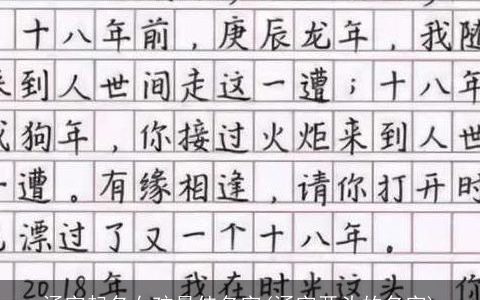 十八年前，庚辰龙年，我随
来到人世间走这一遭；十八年
戊狗年，你接过火炬来到人世
一遭。有缘相逢，请你打开时
漂过了又一个十八年。
2018年，我在时光这头，你